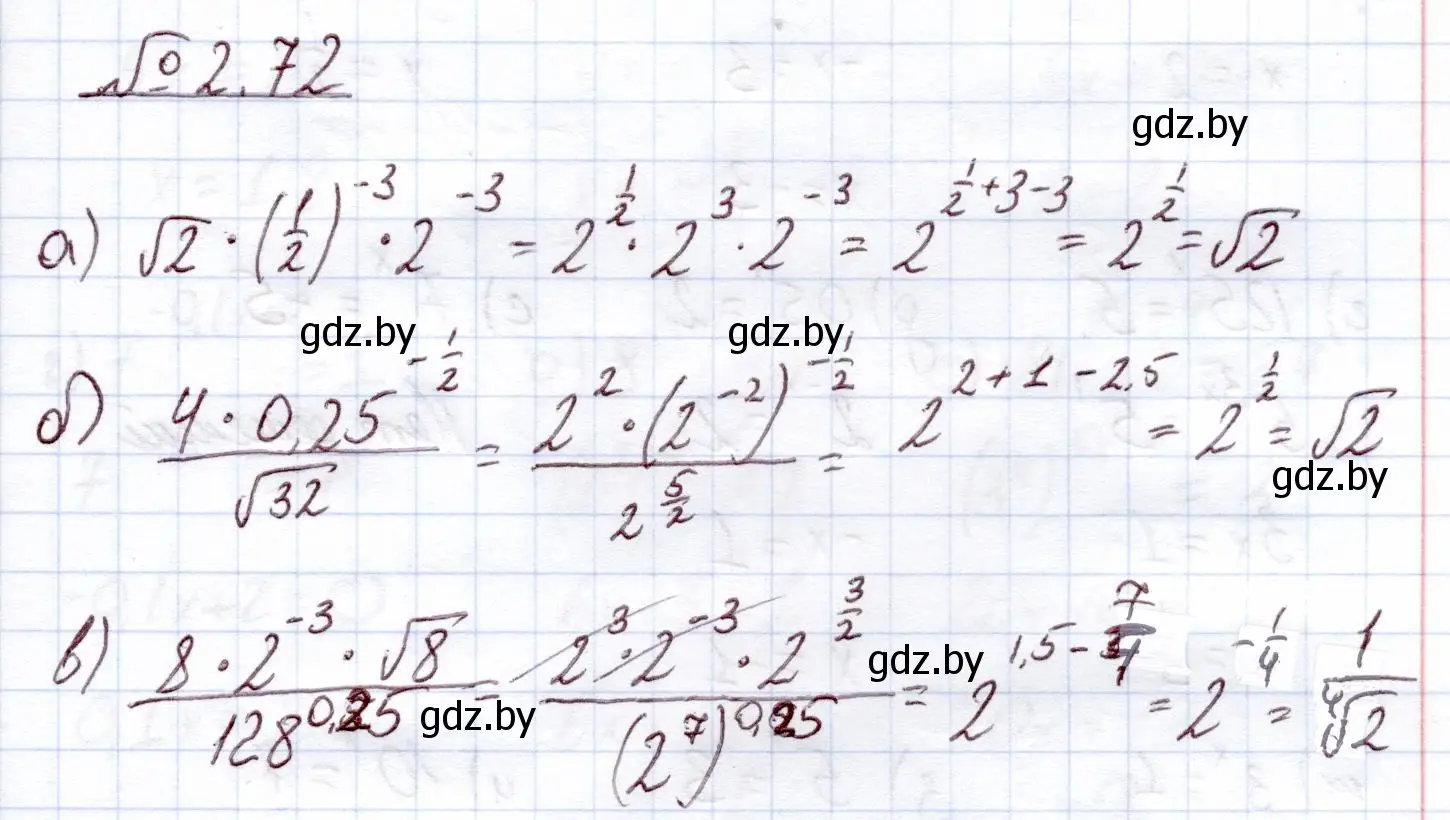 № 2.72
gdz.by
а) √2 · (1/2)^-3 · 2^-3 = 2^(1/2) · 2^3 · 2^-3 = 2^(1/2+3-3) = 2^(1/2) = √2
gdz.by gdz.by
б) (4 · 0,25^(-1/2))/√32 = (2^2 · (2^-2)^(-1/2))/2^(5/2) = 2^(2+1-2,5) = 2^(1/2) = √2
gdz.by
в) (8 · 2^-3 · √8)/128^0,25 = (2^3 · 2^-3 · 2^(3/2))/(2^7)^0,25 = 2^(1,5-7/4) = 2^(-1/4) = 1/⁴√2
gdz.by
gdz.by